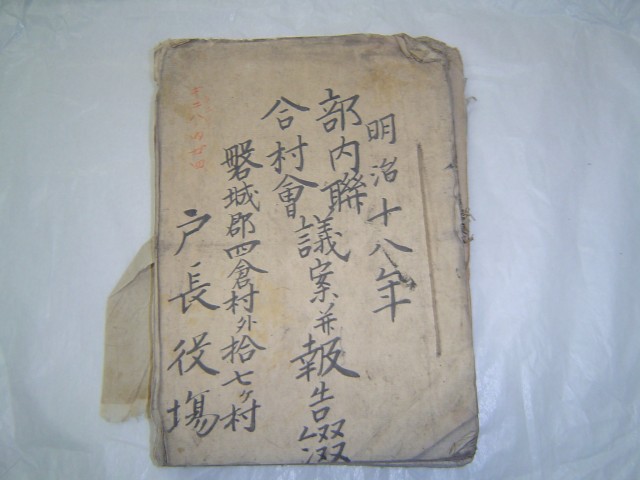 明治十八年
部内聯
合村會
議案并報告綴
磐城郡四倉村外拾七ケ村
戸長役塲